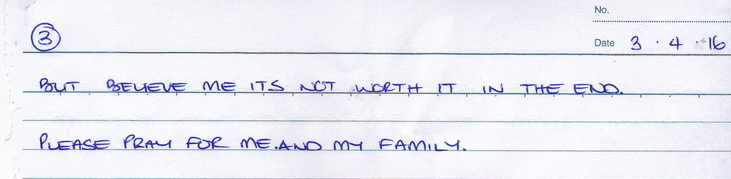 No.
3
Date 3 . 4 . 16
BUT BELIEVE ME ITS NOT WORTH IT IN THE END.
PLEASE PRAY FOR ME.AND MY FAMILY.